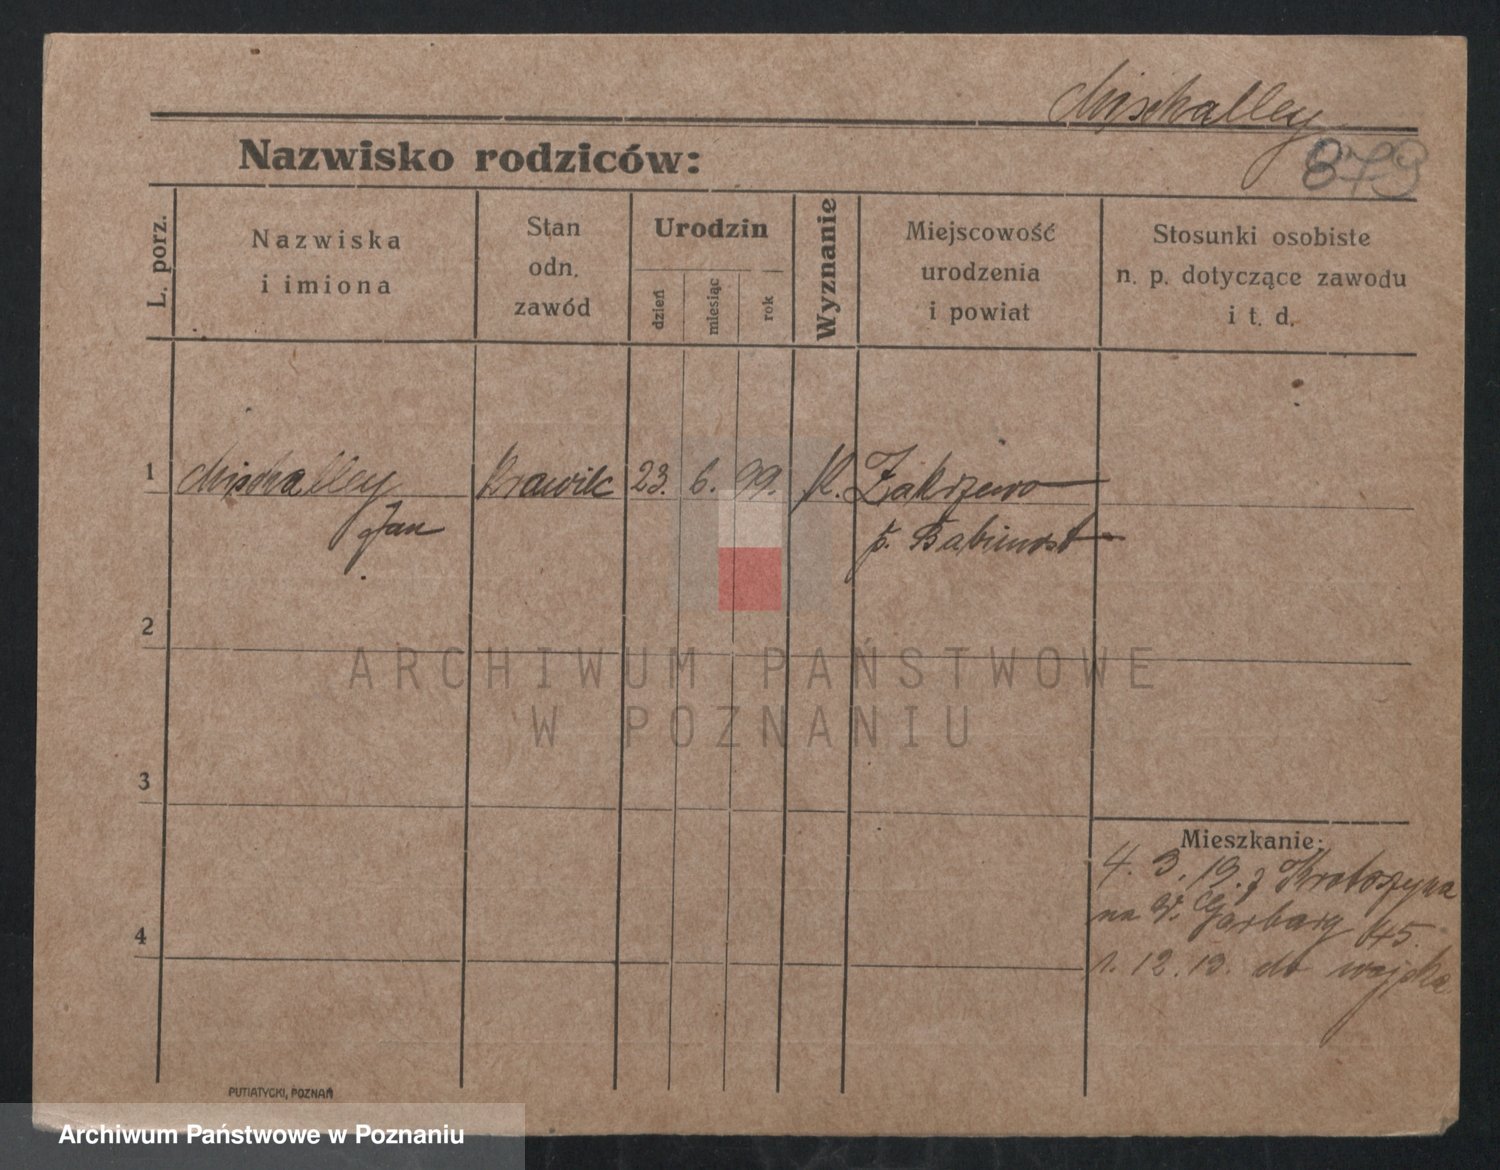 Mischalley
Nazwisko rodziców:
879
L. porz.
Nazwiska
i imiona
Stan
odn.
zawód
Urodzin
dzień
miesiąc
rok
Wyznanie
Miejscowość
urodzenia
i powiat
Stosunki osobiste
n. p. dotyczące zawodu
i t. d.
1
Mischalley
Jan
Krawiec
23.
6.
99.
K.
Zakrzewo
p. Babimost
2
ARCHIWUM PAŃSTWOWE
W POZNANIU
3
Mieszkanie:
4. 3. 19. z Krotoszyna
na W. Garbary 45.
4
1. 12. 19. do wojska
PUTIATYCKI, POZNAŃ
Archiwum Państwowe w Poznaniu